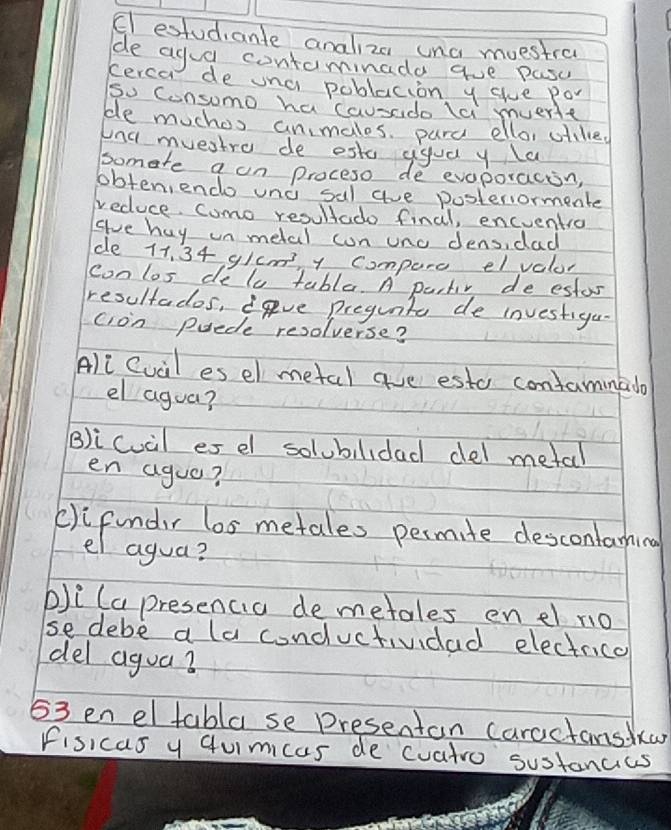 El estudiante analiza una muestra
de agua contaminada que pasa
cerca de una poblacion y que por
su consumo ha causado la muerte
de muchos animales. para ello, utiliza
una muestra de esta agua y la
somete a un proceso de evaporación,
obteniendo una sal que posteriormente
reduce. Como resultado final, encuentra
que hay un metal con una densidad
de 11,34 g/cm³, y compara el valor
con los de la tabla. A partir de estos
resultados, ¿que pregunta de investiga-
ción puede resolverse?
A) ¿Cuál es el metal que esta contaminado
el agua?
B) ¿cuál es el solubilidad del metal
en agua?
C) ¿fundir los metales permite descontamina
el agua?
D) ¿La presencia de metales en el rio
se debe a la conductividad electrica
del agua?
53 en el tabla se presentan caractaristicas
Fisicas y quimicas de cuatro sustancias